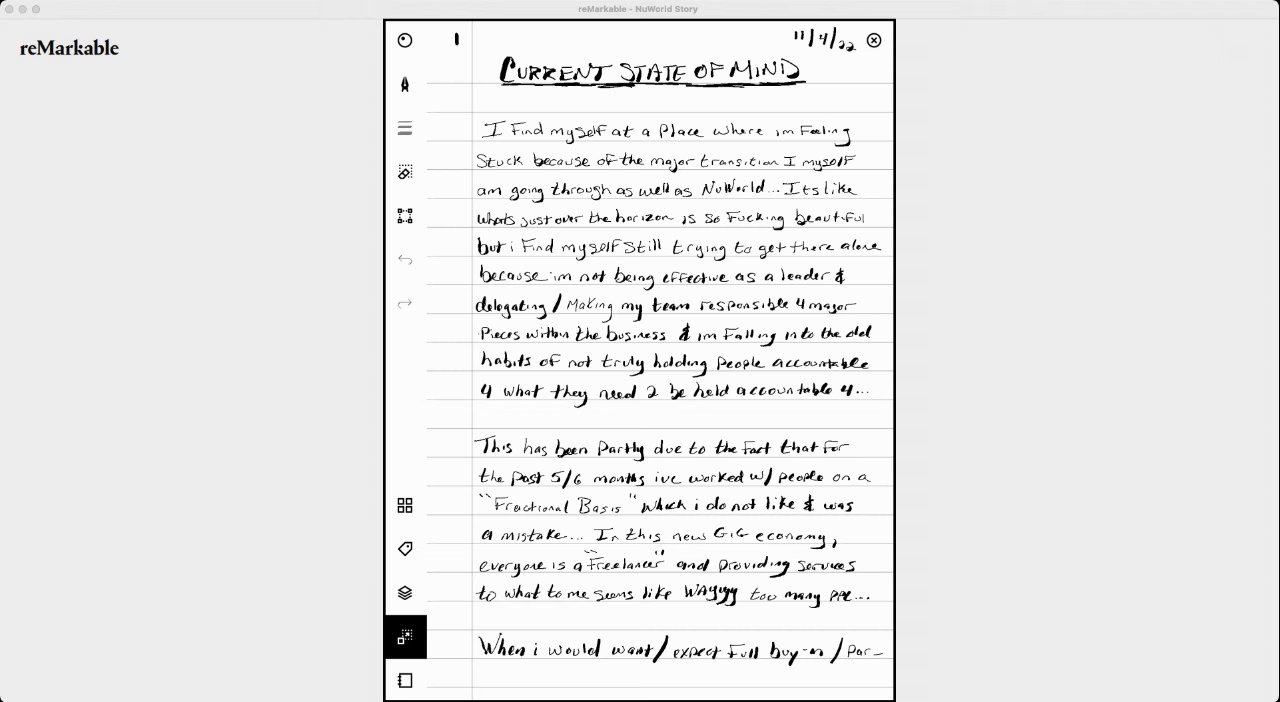 reMarkable - NuWorld Story
reMarkable
1
11/4/22
CURRENT STATE OF MIND
I Find myself at a Place where im Feeling
Stuck because of the major transition I myself
am going through as well as NuWorld... Its like
whats just over the horizon is so Fucking beautiful
but i Find myself still trying to get there alone
because im not being effective as a leader &
delegating / Making my team responsible 4 major
Pieces within the business & im Falling into the old
habits of not truly holding people accountable
4 what they need 2 be held accountable 4...
This has been Partly due to the fact that for
the past 5/6 months ive worked w/ people on a
"Fractional Basis" which i do not like & was
a mistake... In this new GIG economy,
everyone is a "Freelancer" and providing services
to what to me seems like WAyyyy too many PPL...
When i would want / expect Full buy-in / Par-